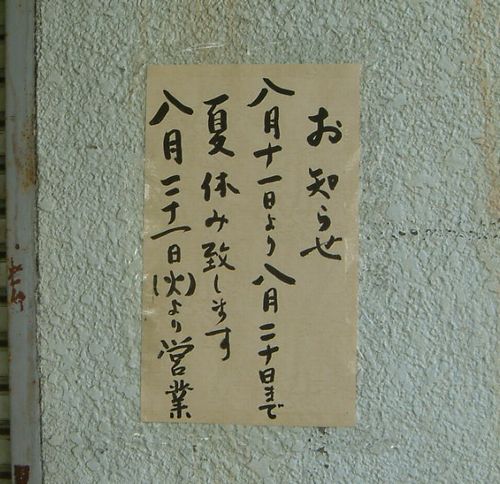 お知らせ
八月十一日より八月二十日まで
夏休み致します
八月二十一日(火)より営業